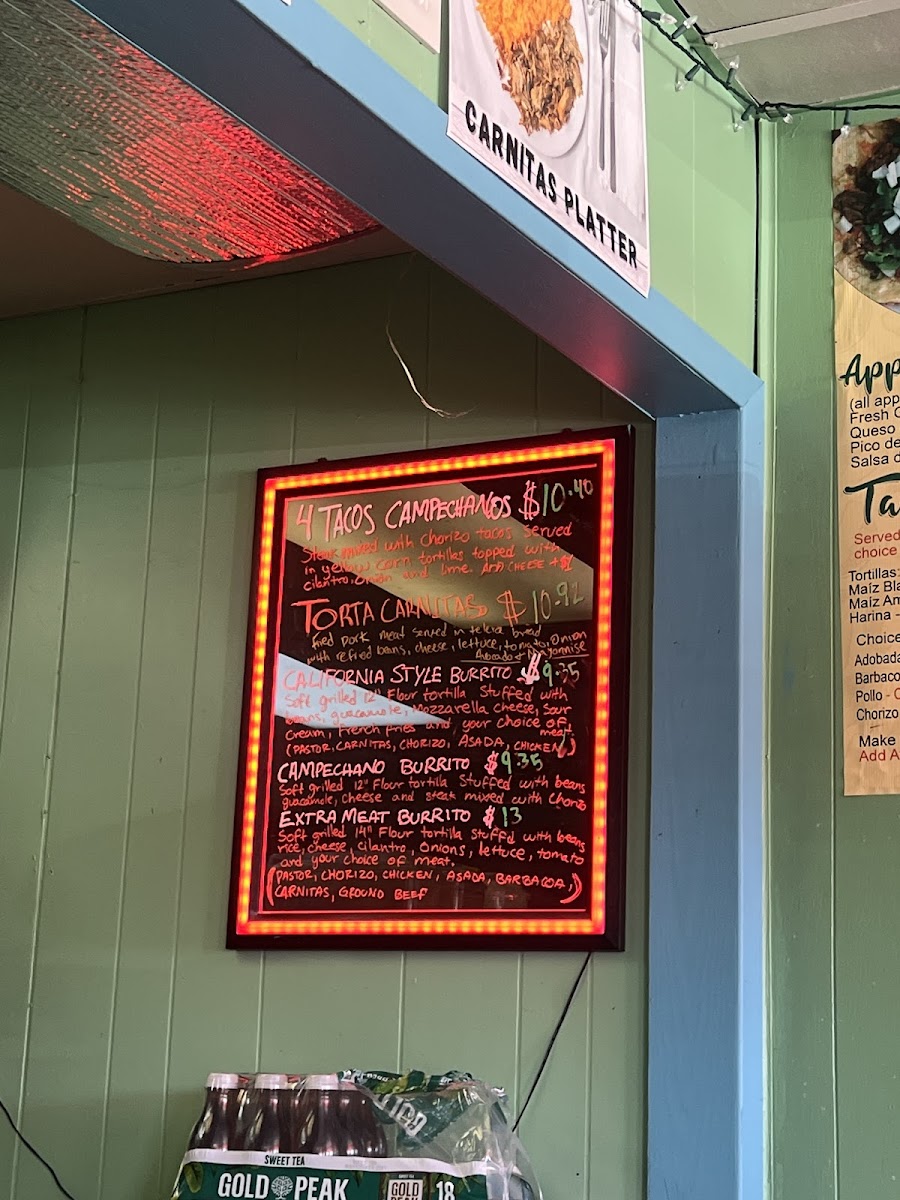 CARNITAS PLATTER
4 TACOS CAMPECHANOS $10.40
Steak mixed with Chorizo tacos served
in yellow corn tortillas topped with
cilantro, onion and lime. Add CHEESE + $1
TORTA CARNITAS $10.92
fried pork meat served in telera bread
with refried beans, cheese, lettuce, tomato, Onion
Avocado + Mayonnise
CALIFORNIA STYLE BURRITO $9.35
Soft grilled 12" Flour tortilla Stuffed with
beans, guacamole, Mozzarella cheese, Sour
cream, French fries and your choice of
meat
(PASTOR, CARNITAS, CHORIZO, ASADA, CHICKEN)
CAMPECHANO BURRITO $9.35
Soft grilled 12" Flour tortilla Stuffed with beans
guacamole, cheese and steak mixed with Chorizo
EXTRA MEAT BURRITO $13
Soft grilled 14" Flour tortilla Stuffed with beans
rice, cheese, cilantro, Onions, lettuce, tomato
and your choice of meat.
(PASTOR, CHORIZO, CHICKEN, ASADA, BARBACOA,)
CARNITAS, GROUND BEEF
App
(all app
Fresh
Queso
Pico de
Salsa d
Ta
Served
choice
Tortillas:
Maíz Bla
Maíz Am
Harina -
Choice
Adobada
Barbaco
Pollo - C
Chorizo
Make
Add A
SWEET TEA
GOLD PEAK
GOLD
PEAK
18